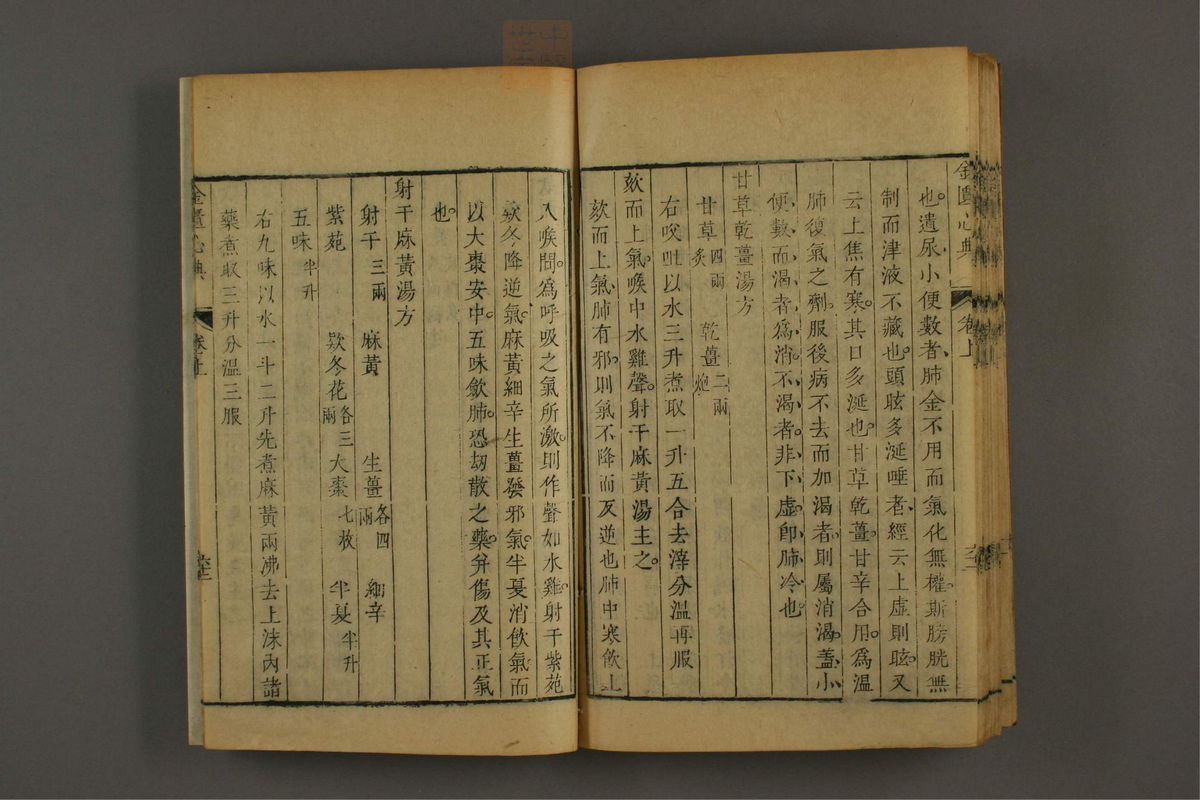 金匱心典
卷上
也遺尿小便數者肺金不用而氣化無權斯膀胱無
制而津液不藏也頭眩多涎唾者經云上虛則眩又
云上焦有寒其口多涎也甘草乾薑甘辛合用爲溫
肺復氣之劑服後病不去而加渴者則屬消渴葢小
便數而渴者爲消不渴者非下虛卽肺冷也
甘草乾薑湯方
甘草四兩炙 乾薑二兩炮
右㕮咀以水三升煮取一升五合去滓分溫再服
欬而上氣喉中水雞聲射干麻黃湯主之
欬而上氣肺有邪則氣不降而反逆也肺中寒飲上
入喉間爲呼吸之氣所激則作聲如水雞射干紫菀
欵冬降逆氣麻黃細辛生薑發邪氣半夏消飲氣而
以大棗安中五味歛肺恐劫散之藥并傷及其正氣
也
射干麻黃湯方
射干三兩 麻黃 生薑各四兩 細辛
紫菀 欵冬花各三兩 大棗七枚 半夏半升
五味半升
右九味以水一斗二升先煮麻黃兩沸去上沫內諸
藥煮取三升分溫三服
金匱心典
卷上